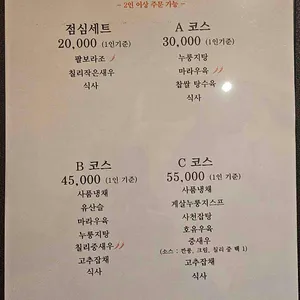 - 2인 이상 주문 가능 -
점심세트
20,000 (1인기준)
팔보라조
칠리작은새우
식사
A 코스
30,000 (1인기준)
누룽지탕
마라우육
찹쌀 탕수육
식사
B 코스
45,000 (1인 기준)
사품냉채
유산슬
마라우육
누룽지탕
칠리중새우
고추잡채
식사
C 코스
55,000 (1인 기준)
사품냉채
게살누룽지스프
사천잡탕
호유우육
중새우
(소스 : 깐풍, 크림, 칠리 중 택 1)
고추잡채
식사